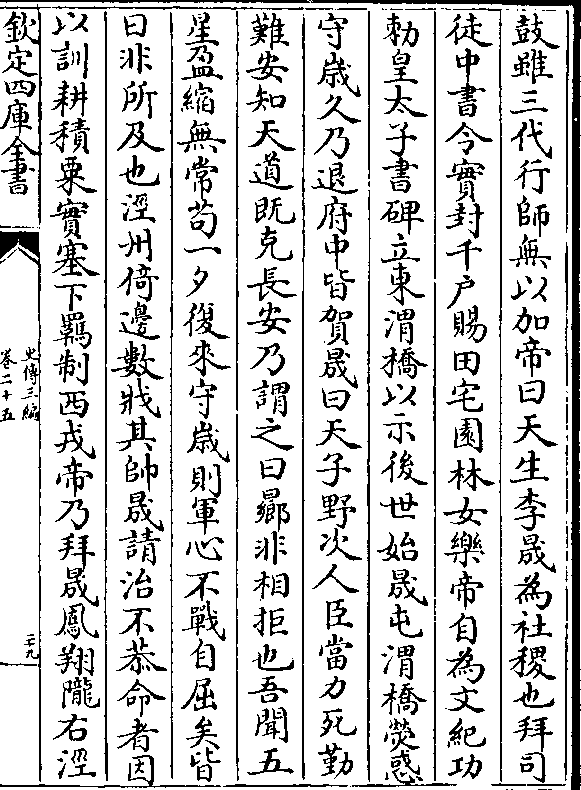 鼓雖三代行師無以加帝曰天生李晟為社稷也拜司
徒中書令實封千户賜田宅園林女樂帝自為文紀功
勅皇太子書碑立東渭橋以示後世始晟屯渭橋熒惑
守歲久乃退府中皆賀晟曰天子野次人臣當力死勤
難安知天道既克長安乃謂之曰曏非相拒也吾聞五
星盈縮無常苟一夕復來守歲則軍心不戰自屈矣皆
曰非所及也涇州倚邊數戕其帥晟請治不恭命者因
以訓耕積粟實塞下羈制西戎帝乃拜晟鳳翔隴右涇
欽定四庫全書
史傳三編
卷二十五
二九